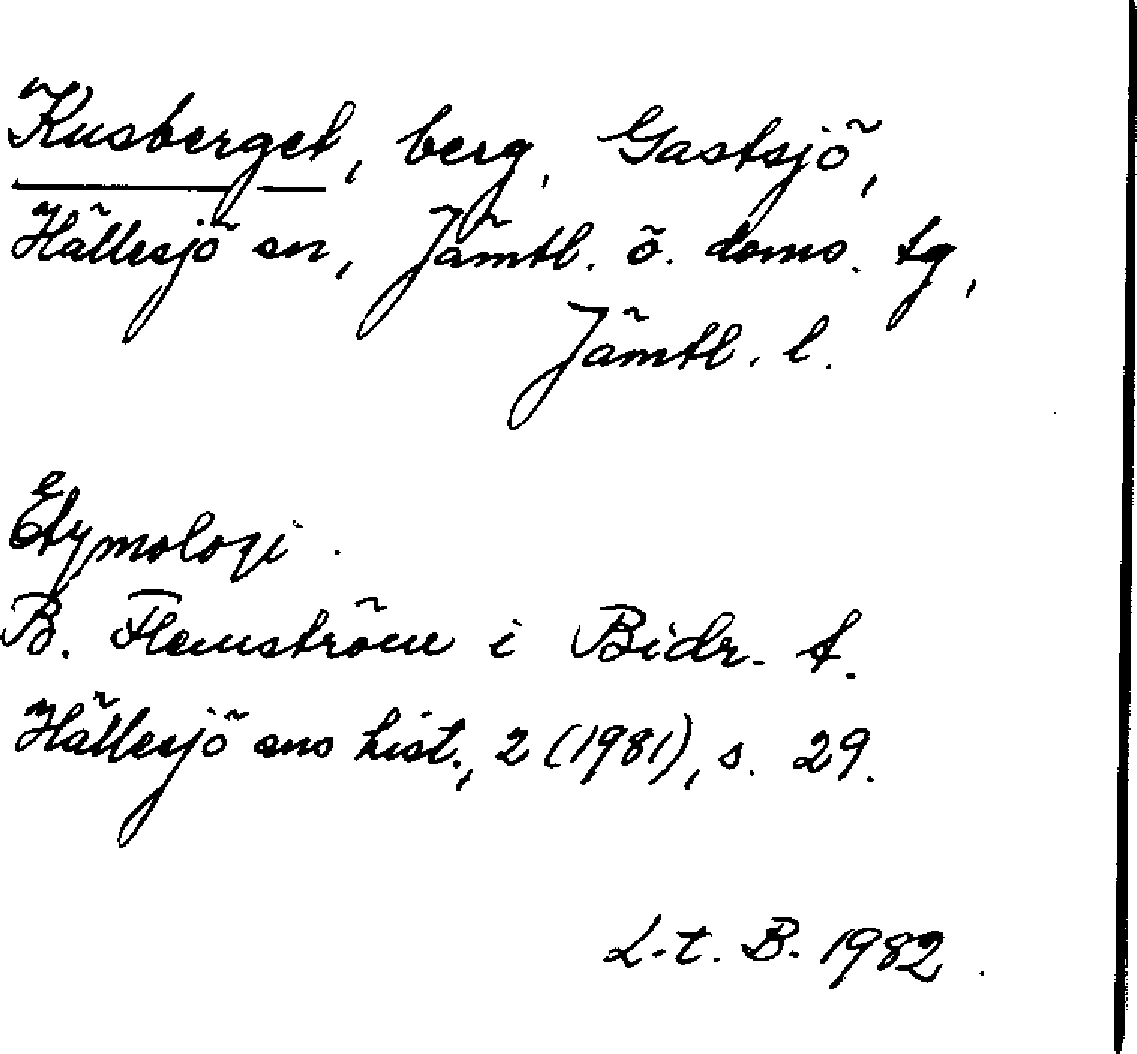 Kusberget, berg, Gastsjö,
Hällesjö sn, Jämtl. ö. doms. tg,
Jämtl. l.
Etymologi.
B. Flemström i Bidr. t.
Hällesjö sns hist., 2 (1981), s. 29.
L.t. B. 1982.